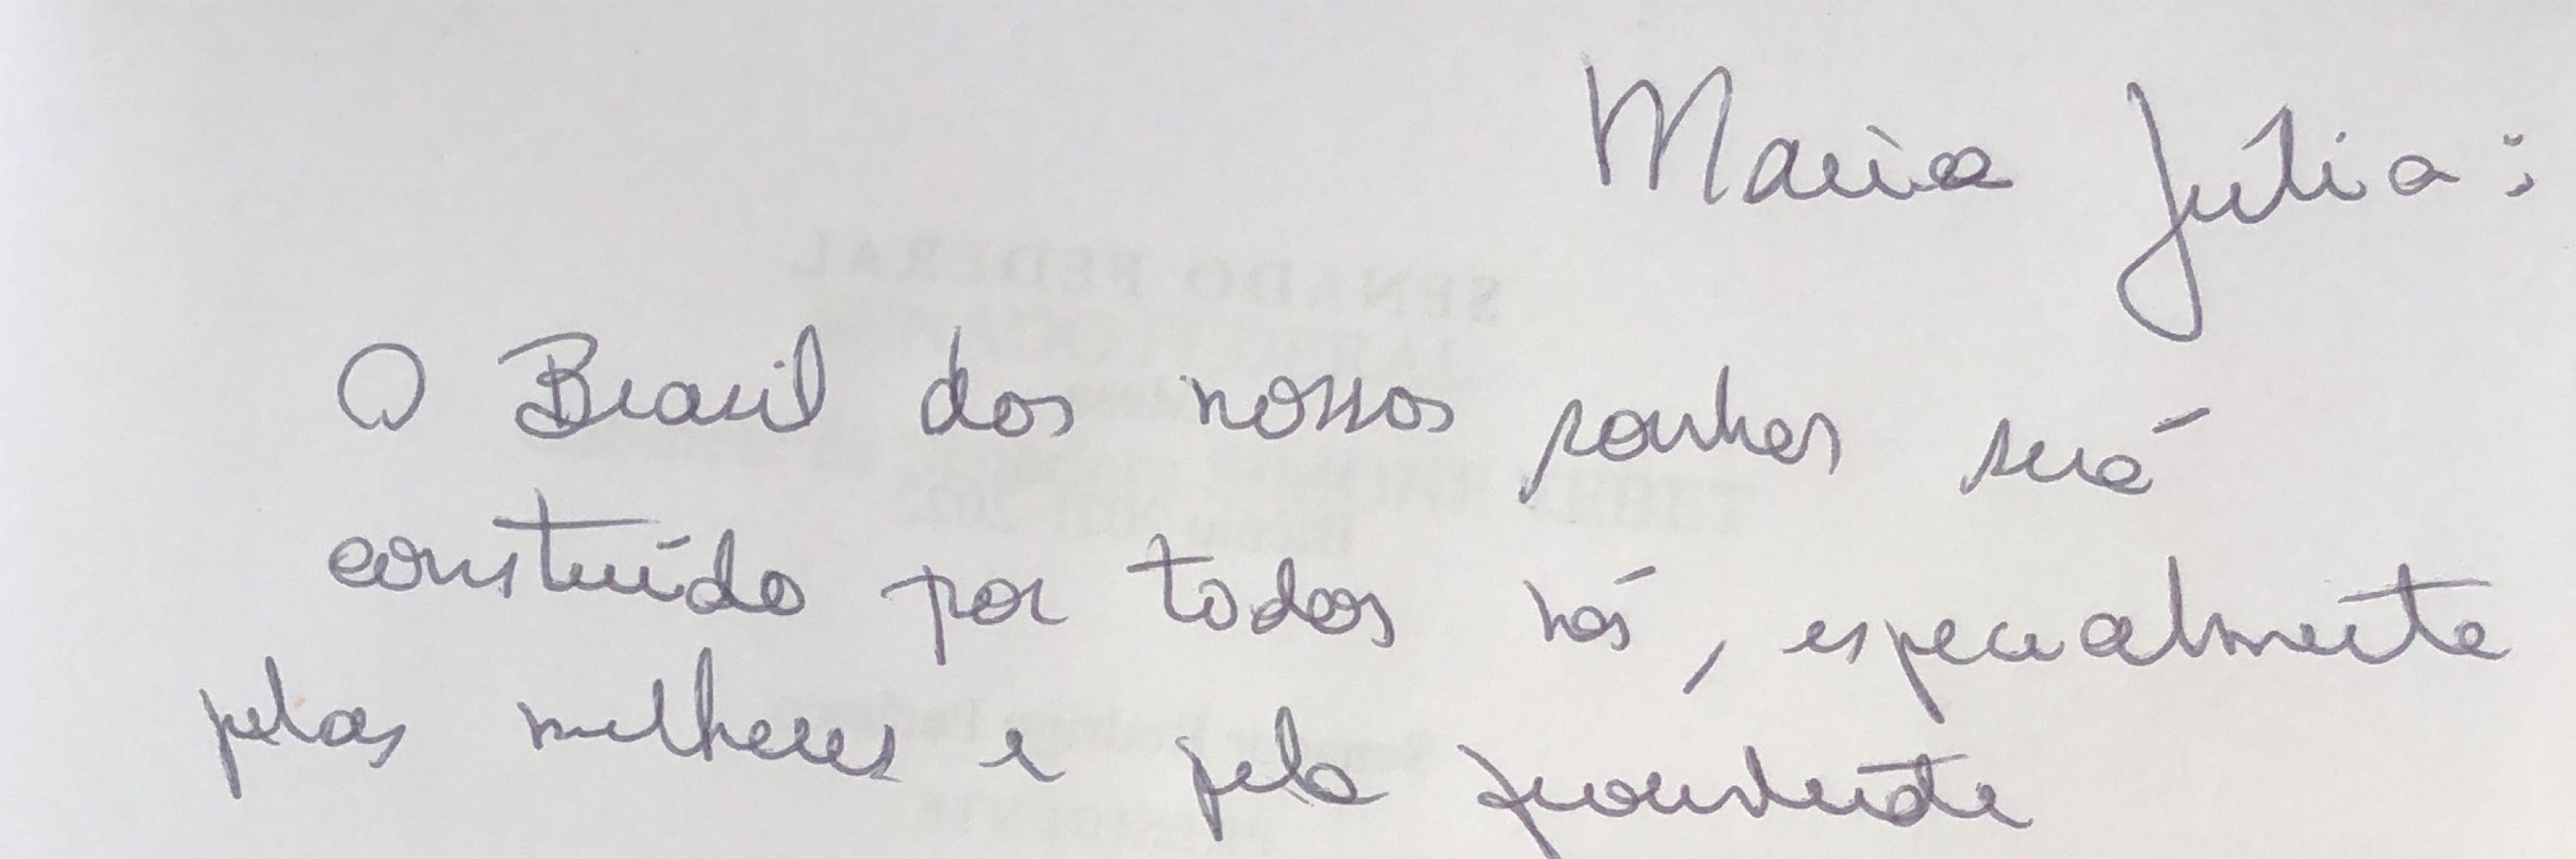 Maria Júlia:
O Brasil dos nossos sonhos será
construído por todos nós, especialmente
pelas mulheres e pela juventude
SENADO FEDERAL